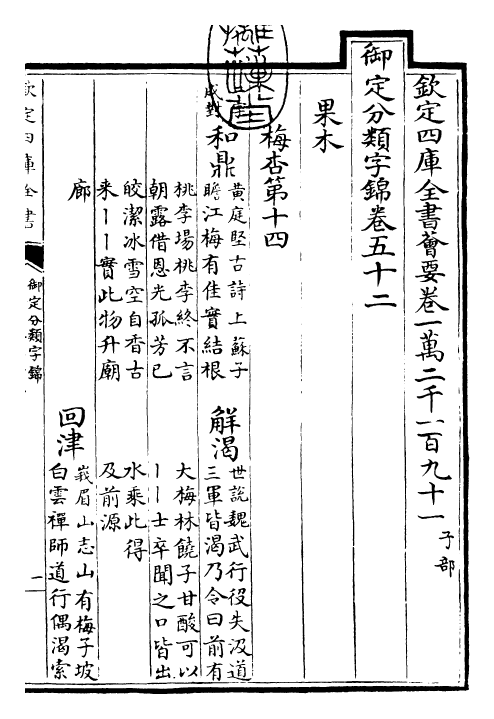 欽定四庫全書薈要卷一萬二千一百九十一 子部
御定分類字錦卷五十二
果木
梅杏第十四
成對
和鼎
黄庭堅古詩上蘇子
瞻江梅有佳實結根
桃李場桃李終不言
朝露借恩光孤芳已
皎潔冰雪空自香古
来丨丨實此物升廟
廊
解渴
世説魏武行役失汲道
三軍皆渴乃令曰前有
大梅林饒子甘酸可以
丨丨士卒聞之口皆出
水乘此得
及前源
回津
峩眉山志山有梅子坡
白雲禪師道行偶渴索
欽定四庫全書
御定分類字錦
一